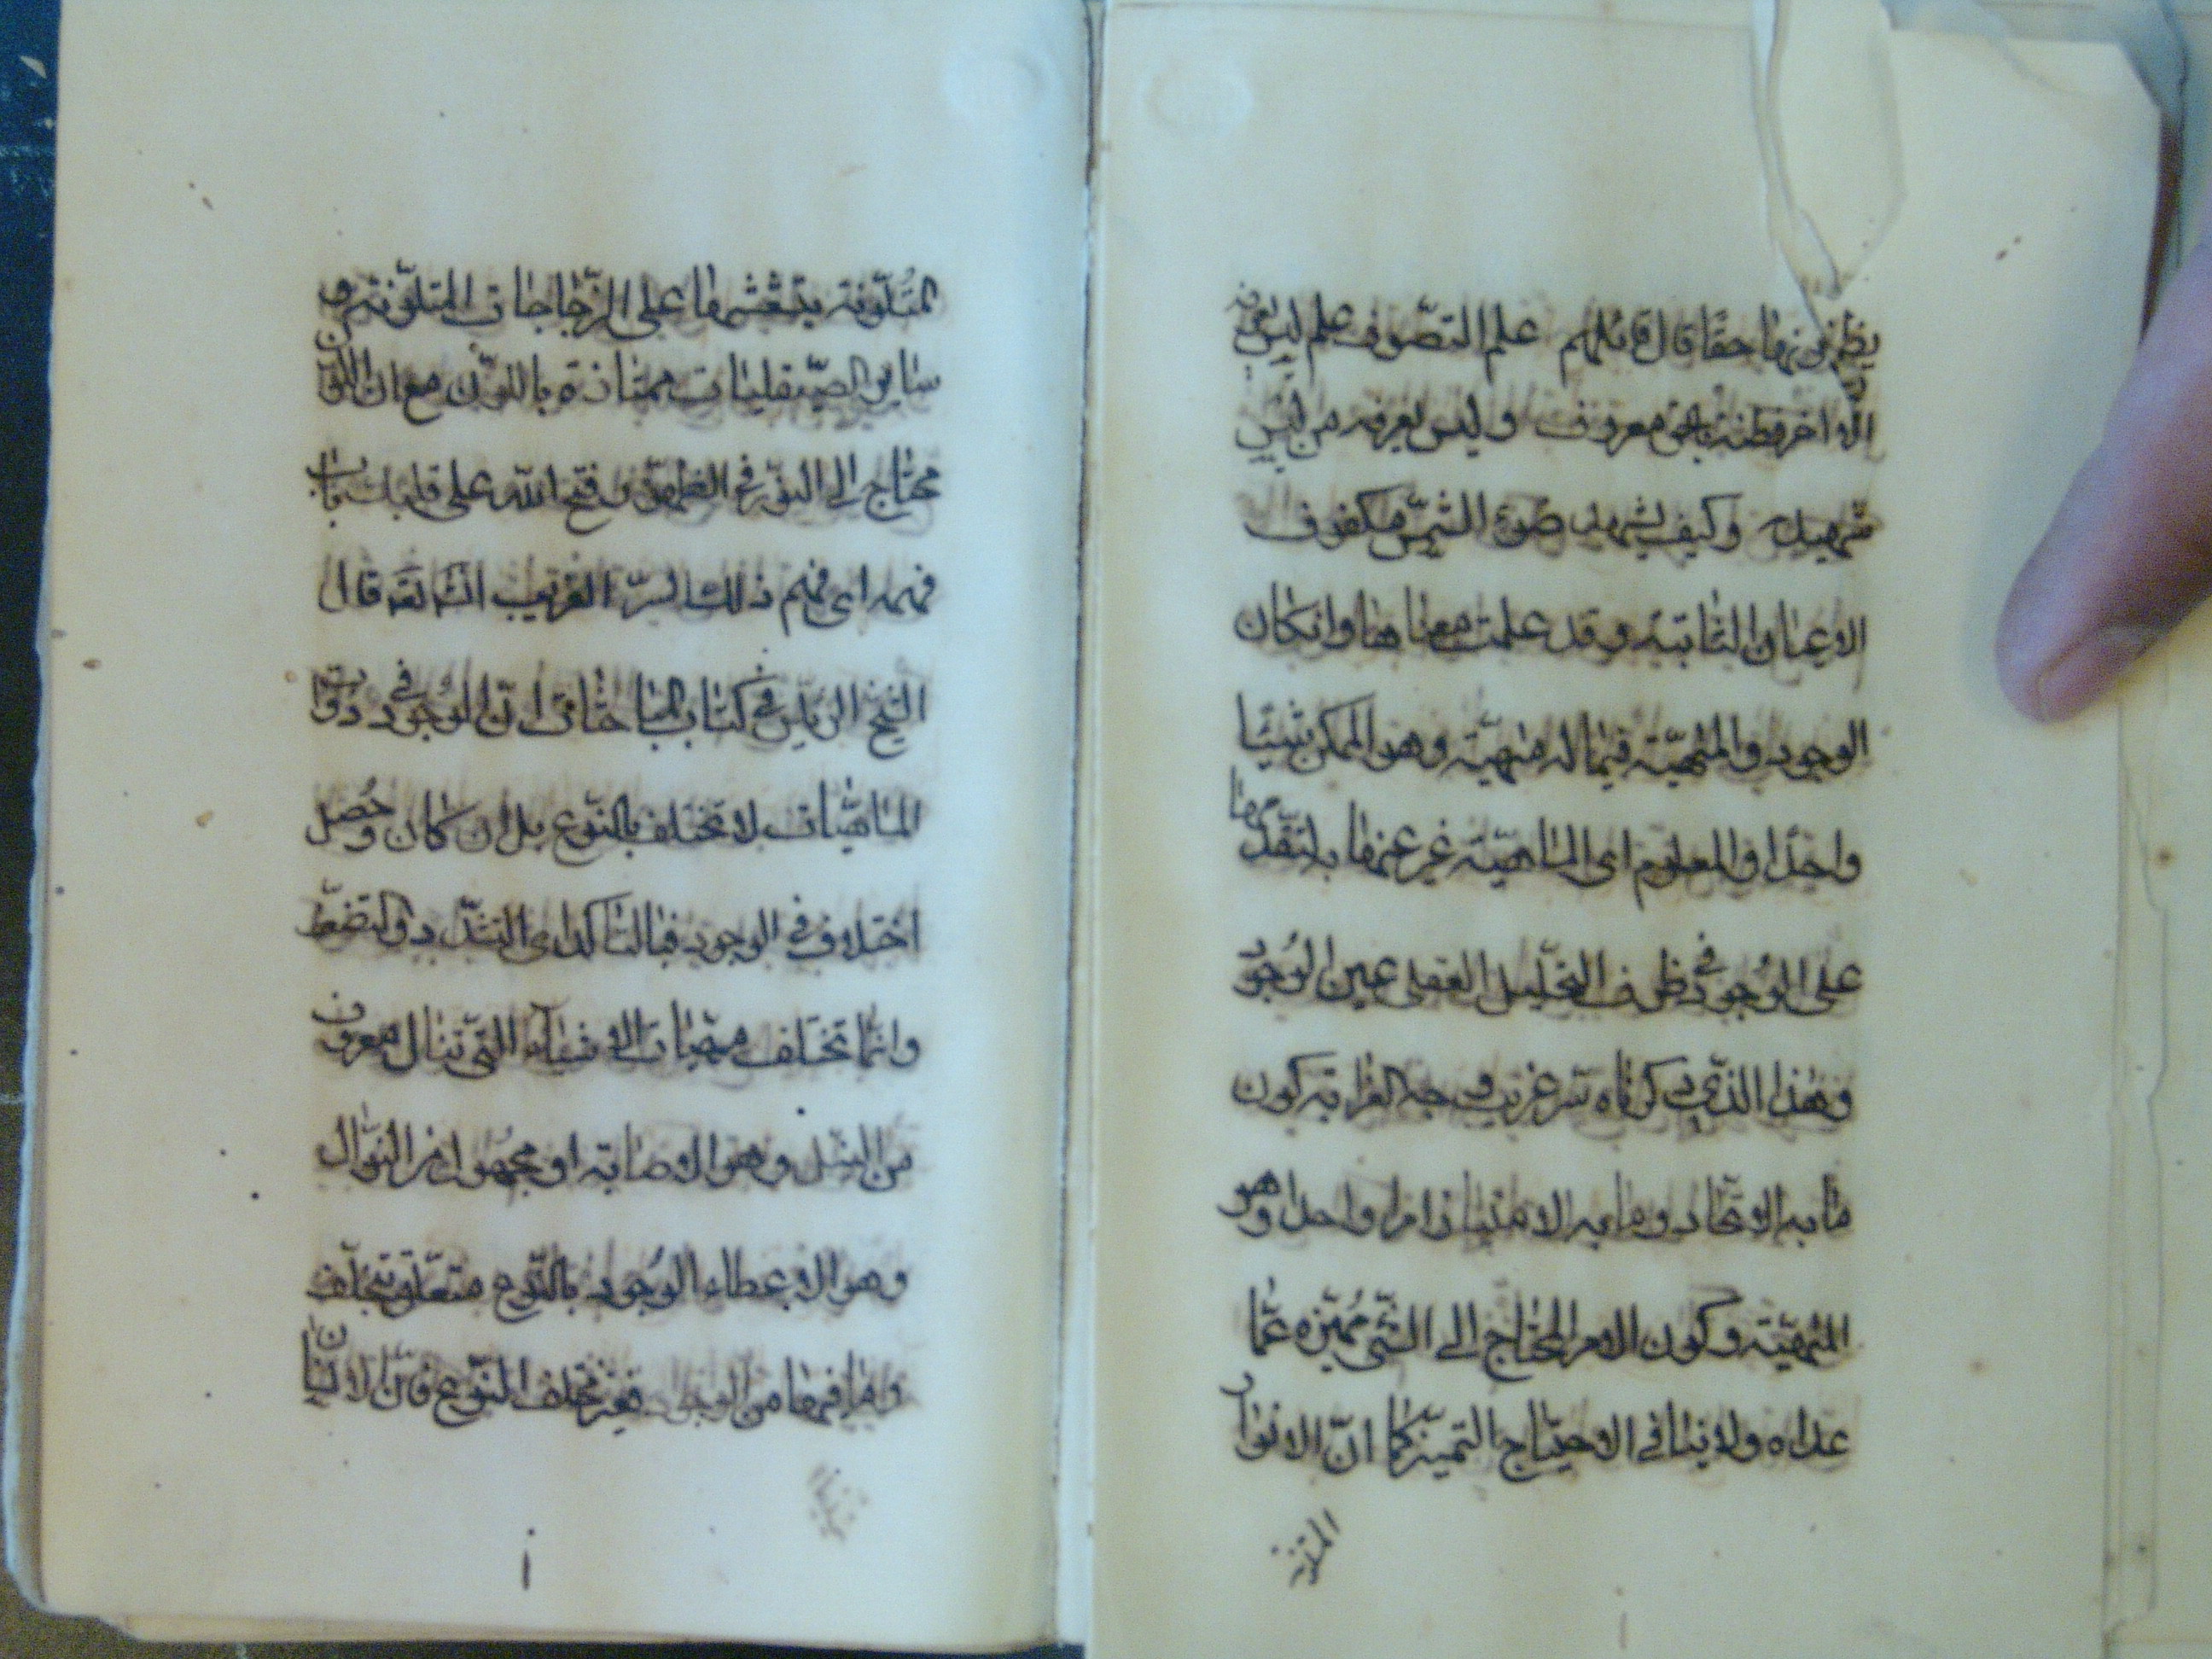 حقا قال قائلهم علم التصوف علم ليس يعرفه
الا اخو فطنة بالحق معروف وليس يعرفه من ليس
يشهده وكيف يشهد ضوء الشمس مكفوف
الاعيان الثابتة وقد علمت معناها وان كان
الوجود والمهية فيما له مهية وهو الممكن شيئا
واحدا والمعلوم اى الماهية غير عنها بل تقدمها
على الوجود في ظرف التحليل العقلي عين الوجود
وهذا الذي ذكرناه سر غريب وجه الغرابة كون
ما به الاتحاد وما به الامتياز امرا واحدا وهو
المهية وكون الامر المحتاج الى الشئ مميزه عما
عداه ولا ينافي الاحتياج التميز كما ان الانوار
المتلونة
المتلونة على الزجاجات المتلونة و
ساير الصيقليات ممتازة باللون مع ان اللون
محتاج الى النور في الظهور فتح الله على قلبك باب
فهمه اى فهم ذلك السر الغريب انشاء تعه قال
الشيخ الرئيس في كتاب المباحثات ان الوجود في ذوات
الماهيات لا تختلف بالنوع بل ان كان وحصل
اختلاف في الوجود فبالتاكد اى التشدد والتضعف
وانما تختلف مهيات الاشياء التي تنال معروف
من النيل وهو الاصابة او مجهول من النوال
وهو الاعطاء الوجود بالنوع متعلق بتختلف
وما فيها من الوجود فغير مختلف النوع فان الانسان